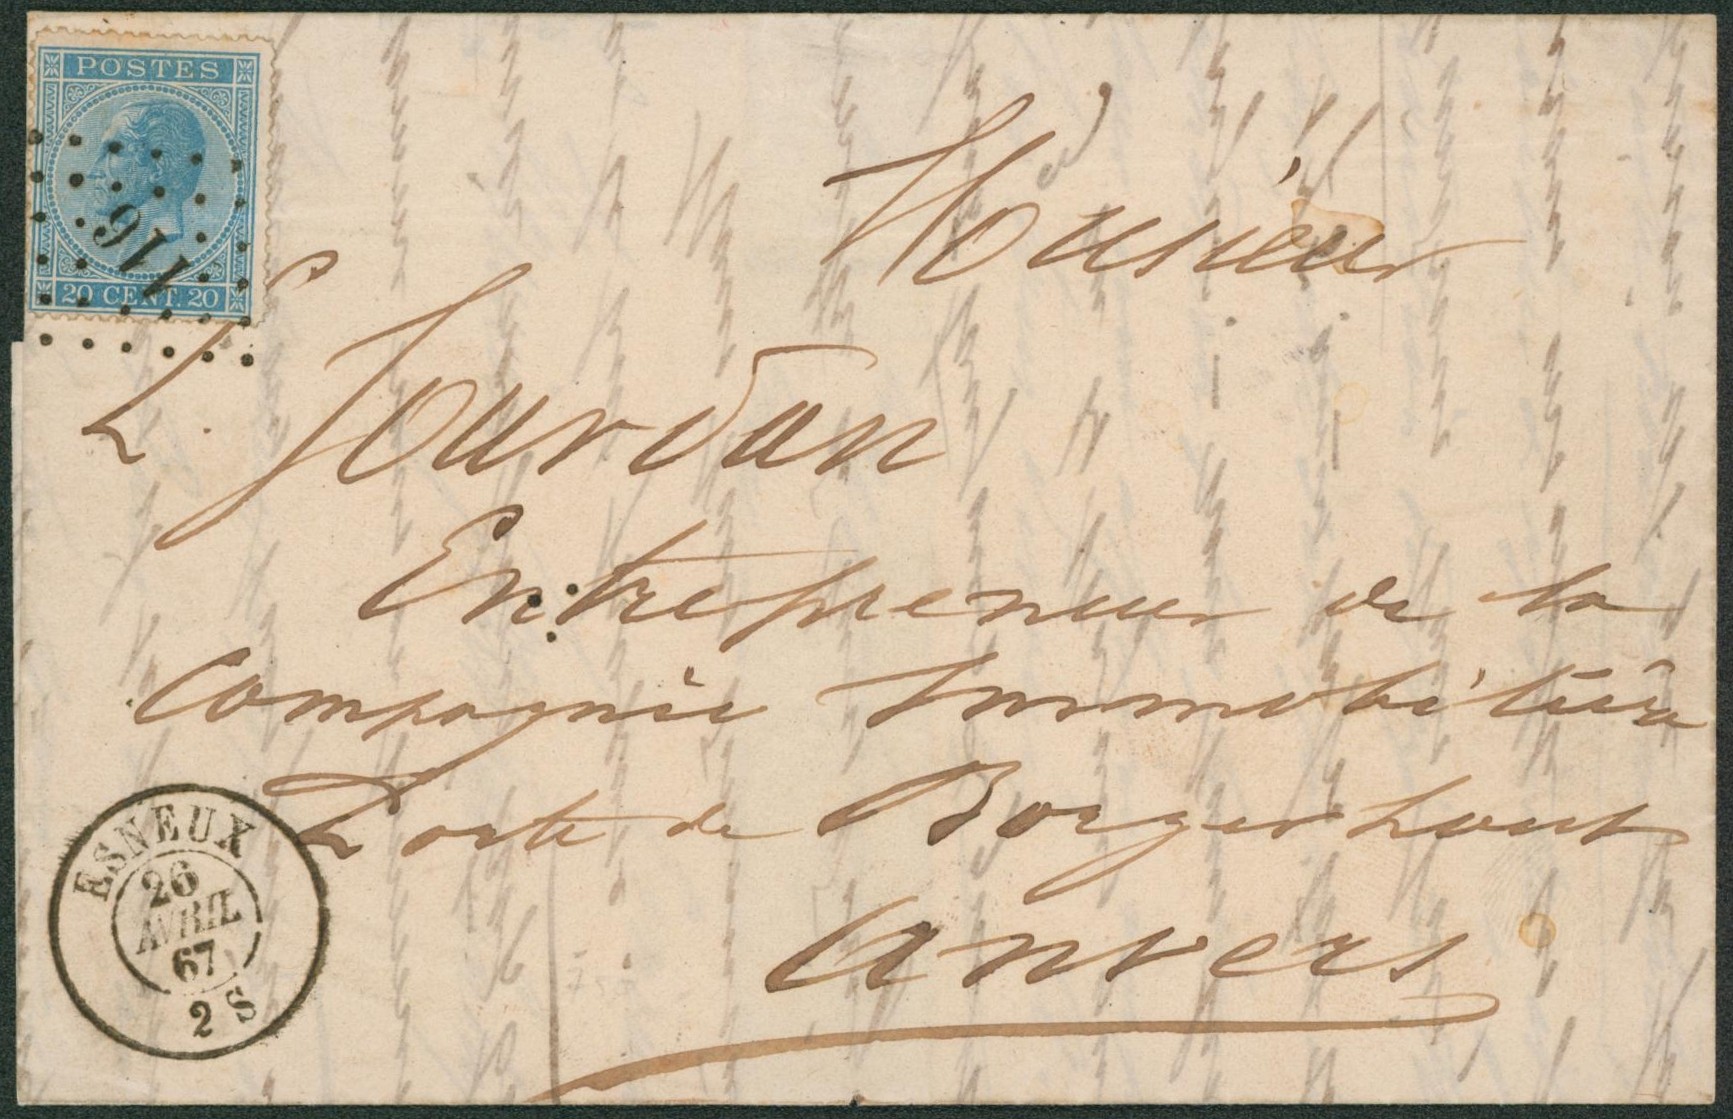 POSTES
116
20 CENT. 20
Monsieur
L. Jourdan
Entrepreneur de la
Compagnie Immobilière
Porte de Borgerhout
Anvers
ESNEUX
26
AVRIL
67
2 S